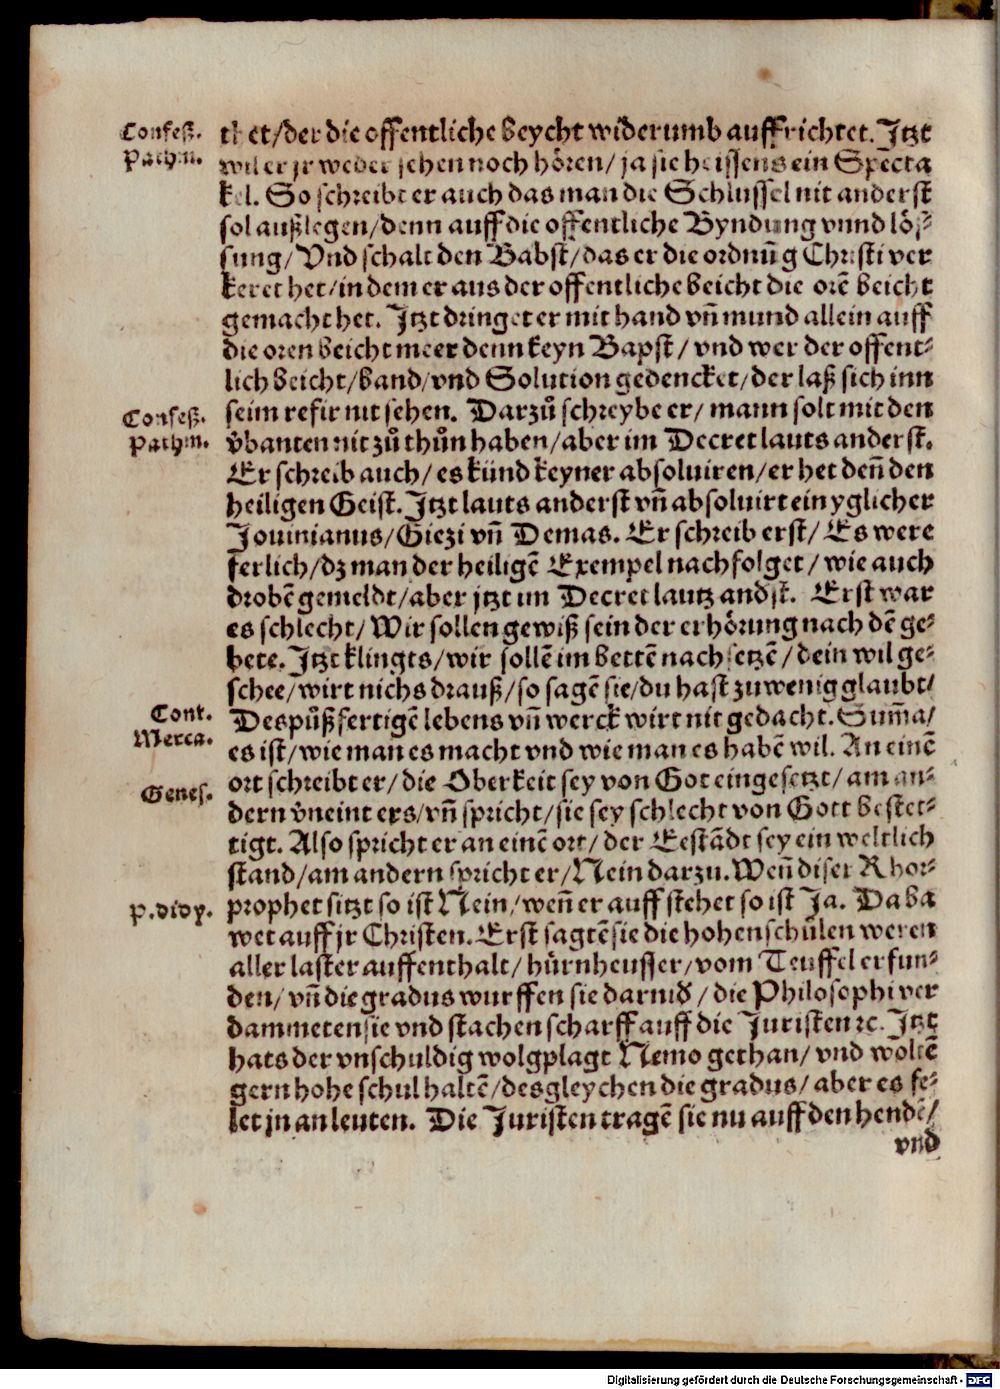 Confess.
Pathm.
thet/der die offentliche beycht widerumb auffrichtet. Jtzt
wil er jr weder sehen noch hören/ ja sie heissens ein Specta
kel. So schreibt er auch das man die Schlussel nit anderst
sol außlegen/denn auff die offentliche Byndung vnnd lö⸗
sung/ Vnd schalt den Babst/das er die ordnũg Christi ver
keret het/in dem er aus der offentliche beicht die orẽ beicht
gemacht het. Jtzt dringet er mit hand vñ mund allein auff
die oren beicht meer denn keyn Bapst/ vnd wer der offent⸗
lich beicht/band/vnd Solution gedencket/der laß sich inn
Confess.
Pathm.
seim refir nit sehen. Darzů schreybe er/ mann solt mit den
vbanten nit zů thůn haben/aber im Decret lauts anderst.
Er schreib auch/ es künd keyner absoluiren/er het deñ den
heiligen Geist. Jtzt lauts anderst vñ absoluirt ein yglicher
Jouinianus/Giezi vñ Demas. Er schreib erst/ Es were
ferlich/dz man der heiligẽ Exempel nachfolget/ wie auch
drobẽ gemeldt/aber jtzt im Decret lautz andst. Erst war
es schlecht/ Wir sollen gewiß sein der erhörung nach dẽ ge⸗
bete. Jtzt klingts/wir sollẽ im bettẽ nach setzẽ/dein wil ge⸗
schee/wirt nichs drauß/so sagẽ sie/du hast zuwenig glaubt/
Cont.
Merca.
Des půßfertigẽ lebens vñ werck wirt nit gedacht. Sum̃a/
es ist/wie man es macht vnd wie man es habẽ wil. An einẽ
Genes.
ort schreibt er/die Oberkeit sey von Got eingesetzt/am an⸗
dern vneint ers/vñ spricht/sie sey schlecht von Gott bestet⸗
tigt. Also spricht er an einẽ ort/ der Eestãdt sey ein weltlich
stand/am andern spricht er/Nein darzu. Weñ diser Rhor⸗
P. didy.
prophet sitzt so ist Nein/weñ er auff stehet so ist Ja. Da ba
wet auff jr Christen. Erst sagtẽ sie die hohenschülen weren
aller laster auffenthalt/hürnheusser/vom Teuffel erfun⸗
den/vñ die gradus wurffen sie darnid/die Philosophi ver
dammeten sie vnd stachen scharff auff die Juristen ꝛc. Jtzt
hats der vnschuldig wolgplagt Nemo gethan/ vnd woltẽ
gern hohe schul haltẽ/desgleychen die gradus/aber es fe⸗
let jn an leuten. Die Juristen tragẽ sie nu auff den hendẽ/
vnd
Digitalisierung gefördert durch die Deutsche Forschungsgemeinschaft - DFG